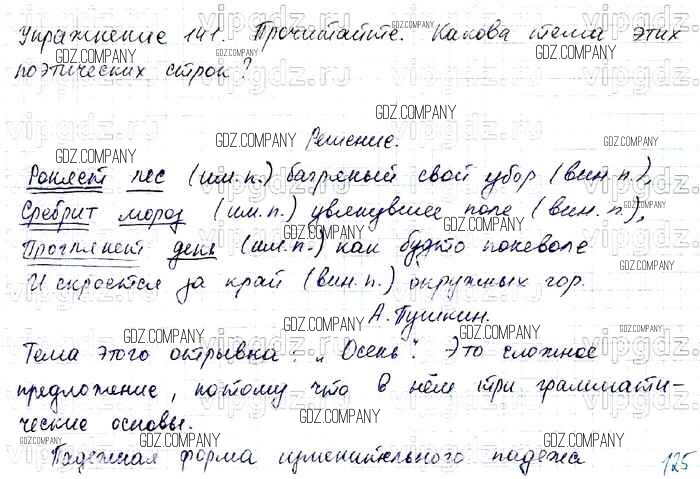 Упражнение 141. Прочитайте. Какова тема этих
поэтических строк?
Решение.
Роняет лес (им. п.) багряный свой убор (вин. п.),
Сребрит мороз (им. п.) увянувшее поле (вин. п.),
Проглянет день (им. п.) как будто поневоле
И скроется за край (вин. п.) окружных гор.
А. Пушкин.
Тема этого отрывка: "Осень". Это сложное
предложение, потому что в нём три граммати-
ческие основы.
Падежная форма именительного падежа
125